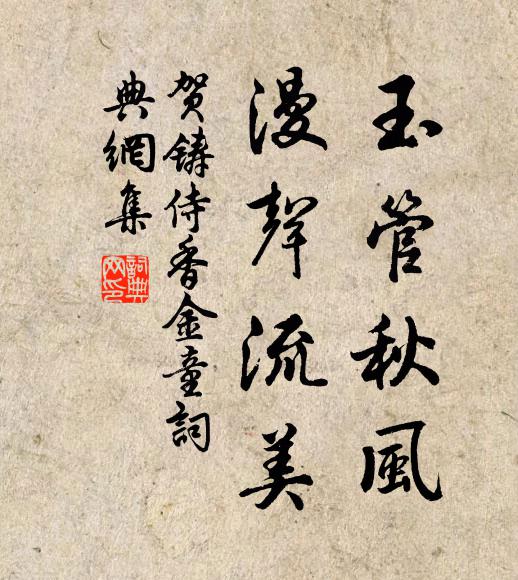 玉管秋風
漫聲流美
賀鑄侍香金童詞
典網集
詞典
网印